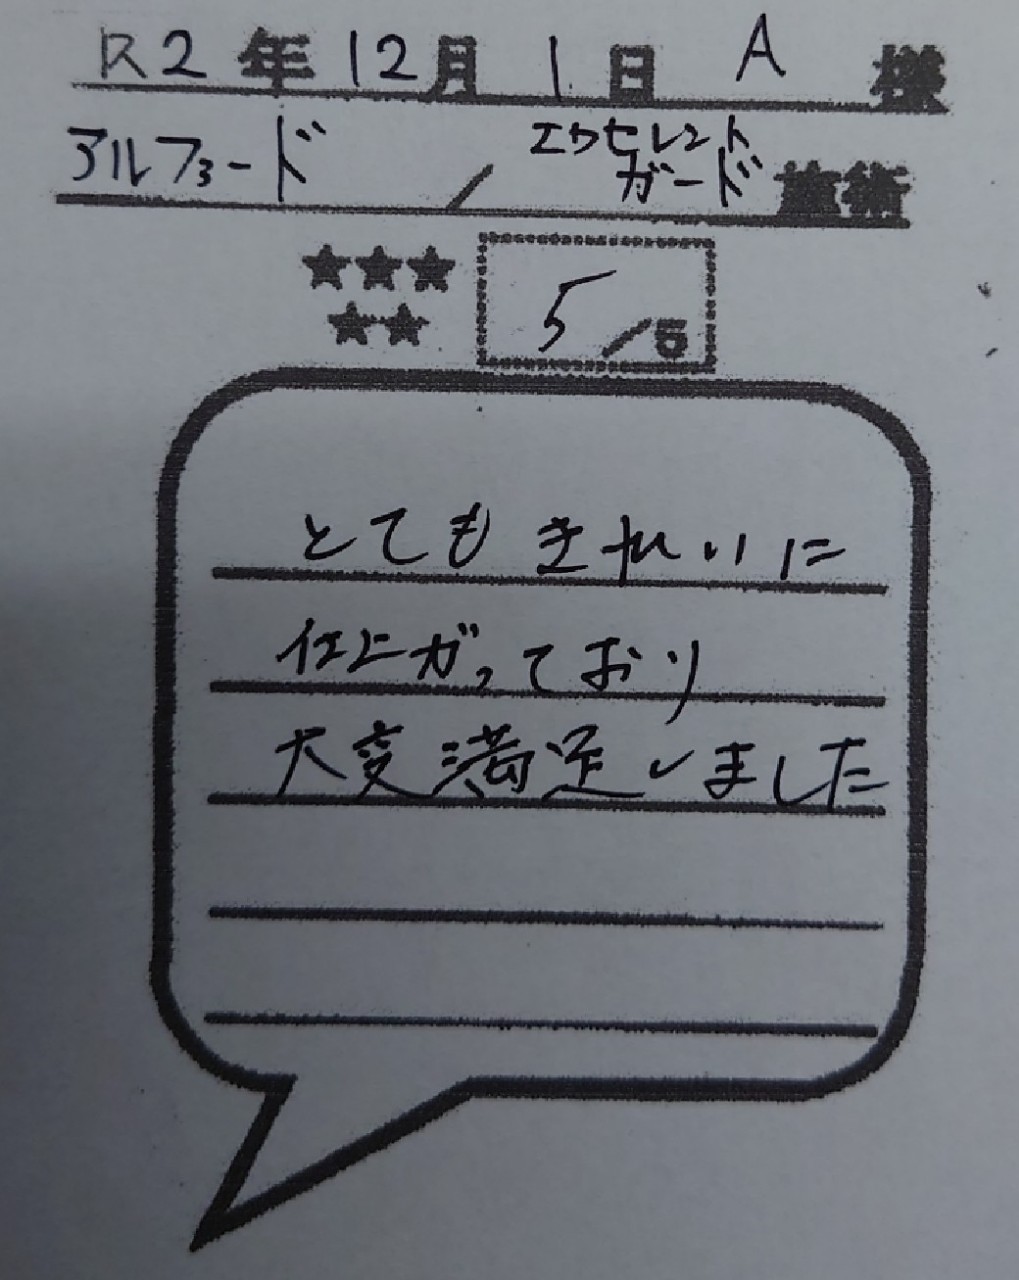 R2年12月1日 A 様
アルファード / エクセレントガード 施術
★★★
★★
5/5
とてもきれいに
仕上がっており
大変満足しました